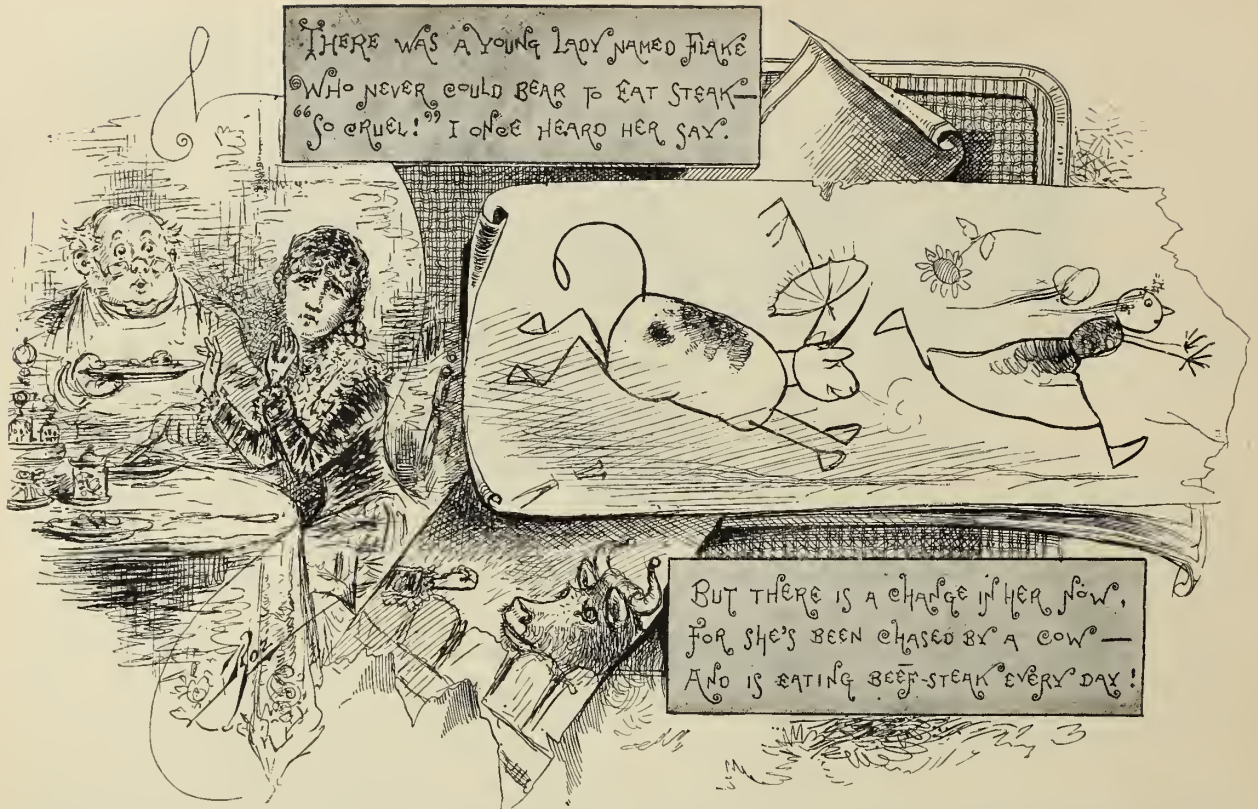 There was a young lady named Flake
Who never could bear to eat steak—
"So cruel!" I once heard her say.
But there is a change in her now,
For she's been chased by a cow—
And is eating beef-steak every day!